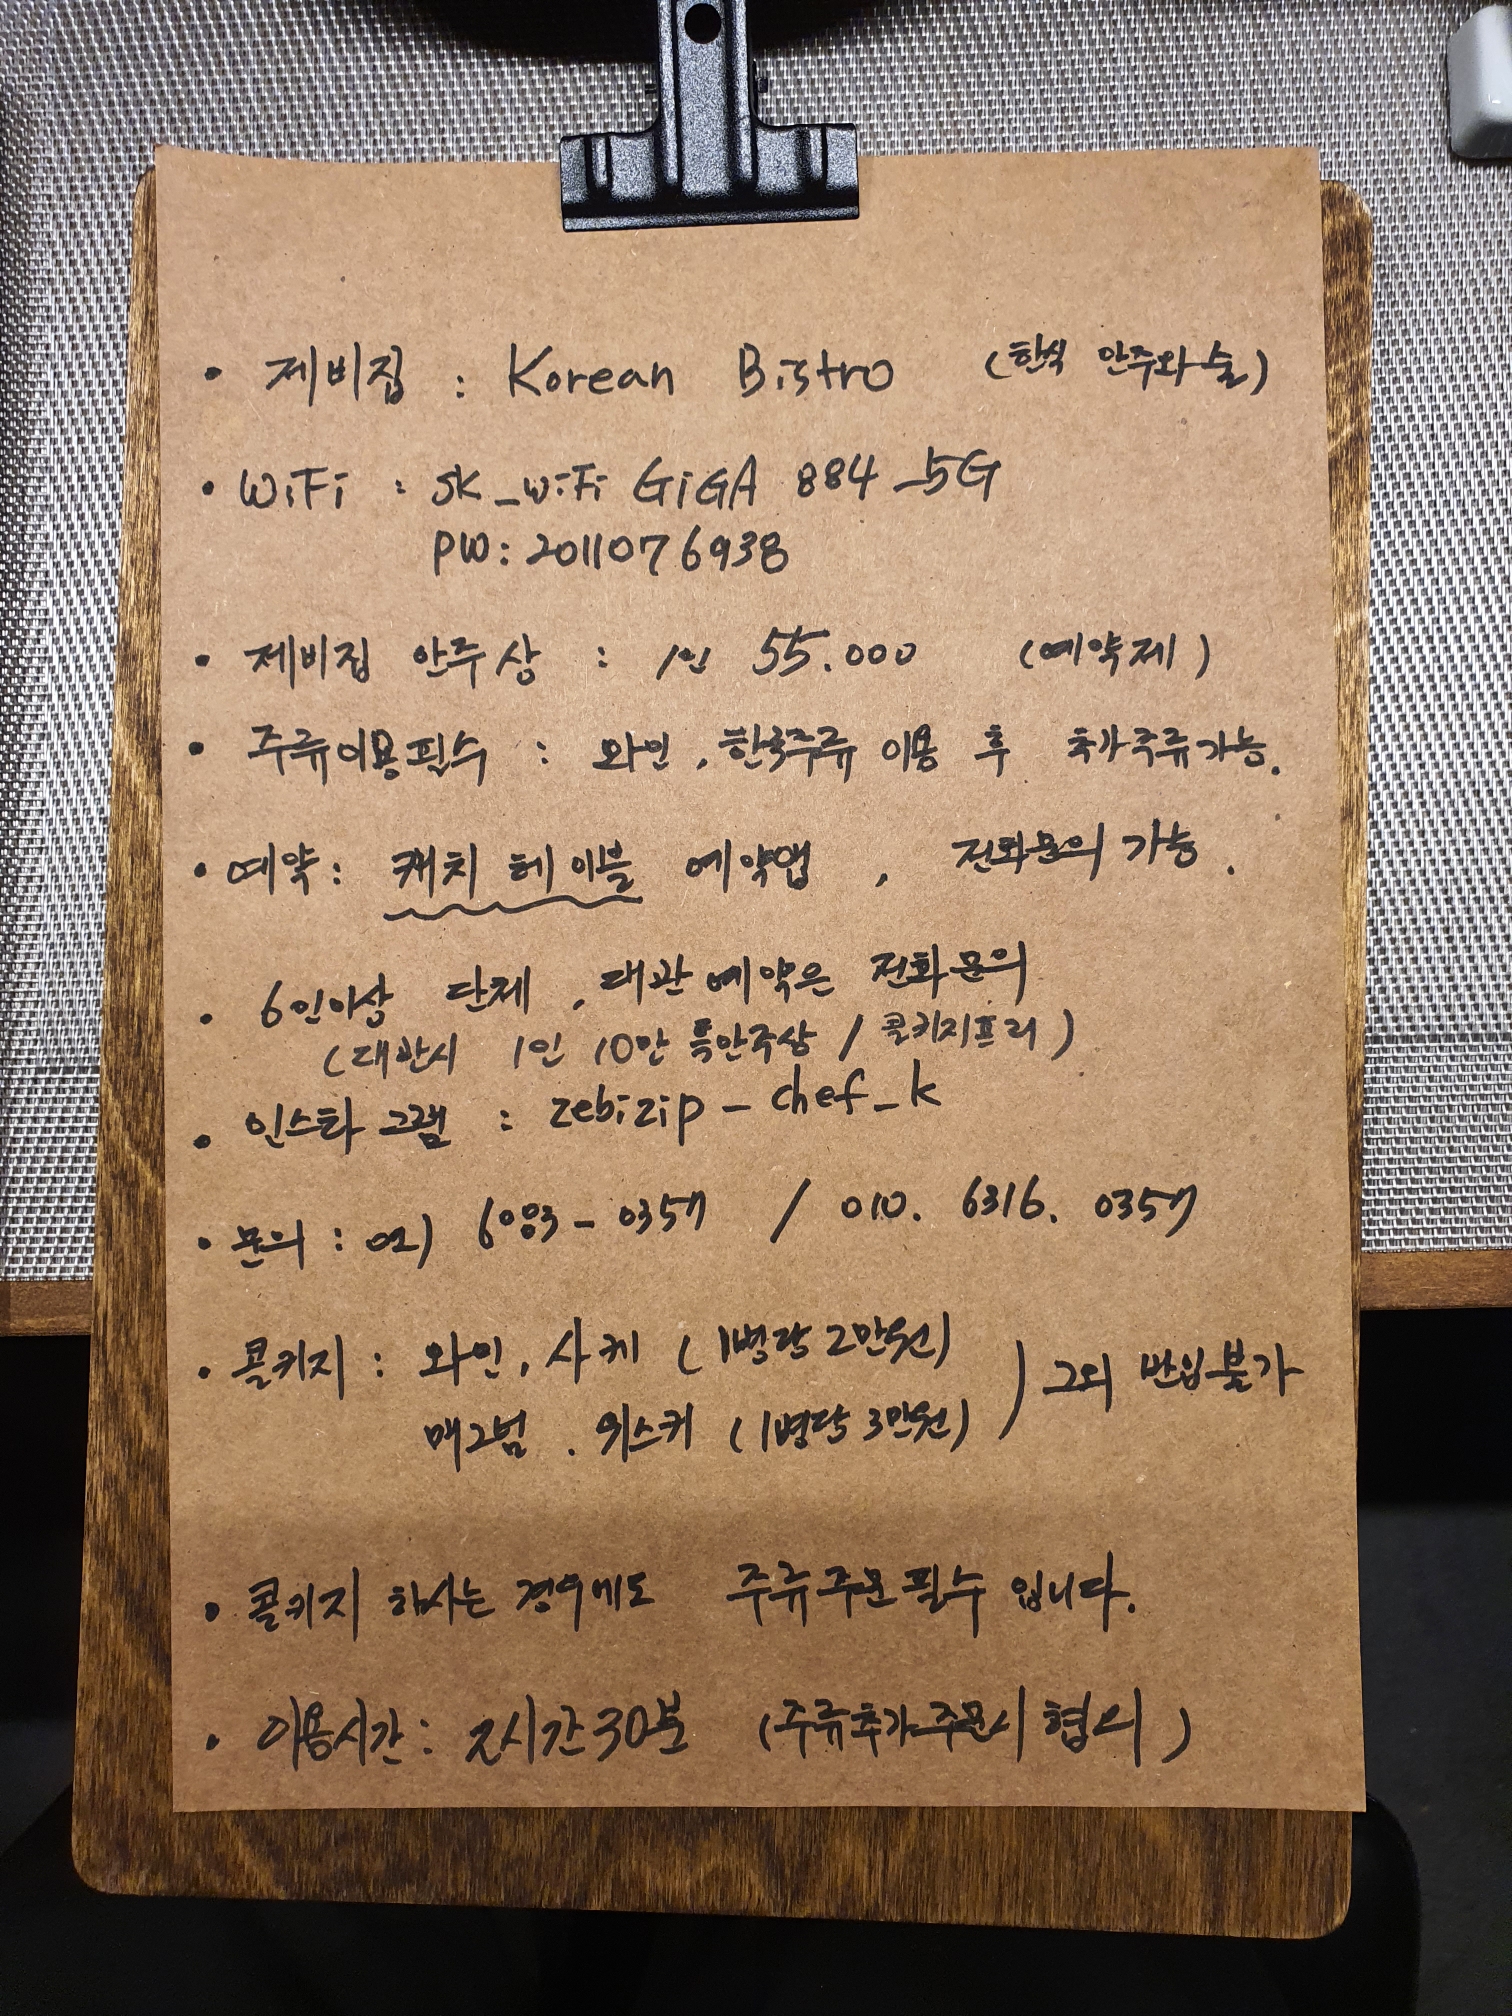 • 제비집 : Korean Bistro (한식 안주와 술)
• WiFi : SK_WiFi GiGA 884_5G
PW: 2011076938
• 제비집 안주상 : 1인 55.000 (예약제)
• 주류이용필수 : 와인, 한국주류 이용 후 추가주류가능.
• 예약: 캐치테이블 예약앱, 전화문의 가능.
• 6인이상 단체, 대관예약은 전화문의
(대관시 1인 10만 특안주상 / 콜키지프리)
• 인스타그램 : zebizip_chef_k
• 문의 : 02) 6083-0357 / 010. 6316. 0357
• 콜키지 : 와인, 사케 (1병당 2만원)
매그넘. 위스키 (1병당 3만원) ) 그외 반입불가
• 콜키지 하시는 경우에도 주류주문필수 입니다.
• 이용시간: 2시간30분 (주류추가주문시 협의)